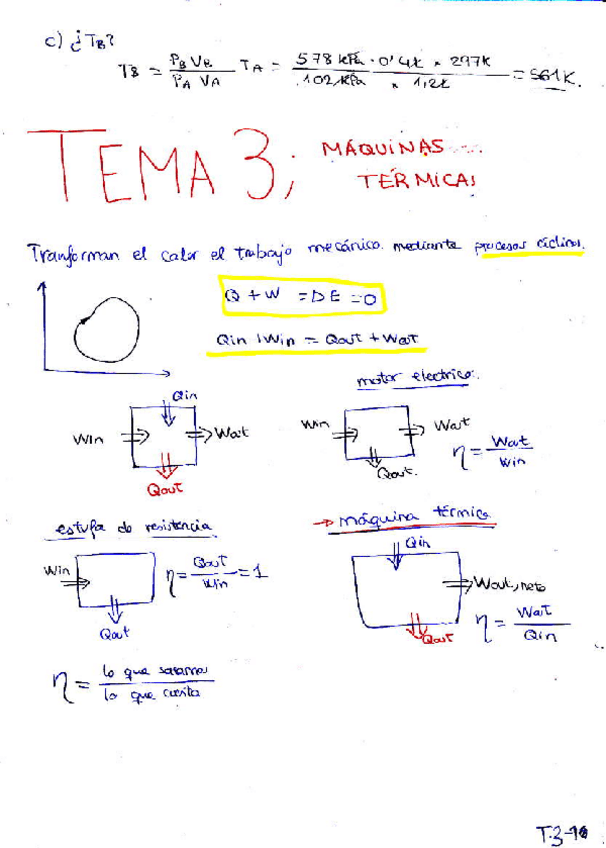 c) ¿TB?
TB = PB VB / PA VA TA = 578 kPa · 0'4L × 297K / 102 kPa × 1,2L = 561K.
TEMA 3; MÁQUINAS
TÉRMICAS
Tranforman el calor el trabajo mecánico mediante procesos cíclinos.
Q + W = DE = 0
Qin + Win = Qout + Wout
motor electrico:
Qin
Win Wout
Qout
Win Wout
Qout.
η = Wout / Win
estufa de resistencia
Win
Qout
η = Qout / Win = 1
→ máquina térmica
Qin
Wout, neto
Qout
η = Wout / Qin
η = lo que sacamos / lo que cuesta